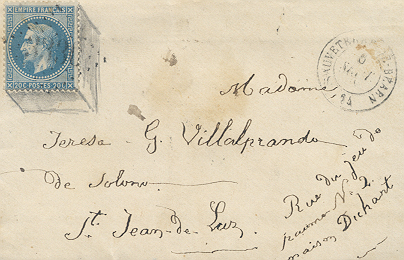 EMPIRE FRANC
20C POSTES 20C
SAUVETERRE-DE-BÉARN
Madame
Teresa G. Villalprando
de Solono
St. Jean-de-Luz
Rue du Jeu de
paume No 2
maison Duhart